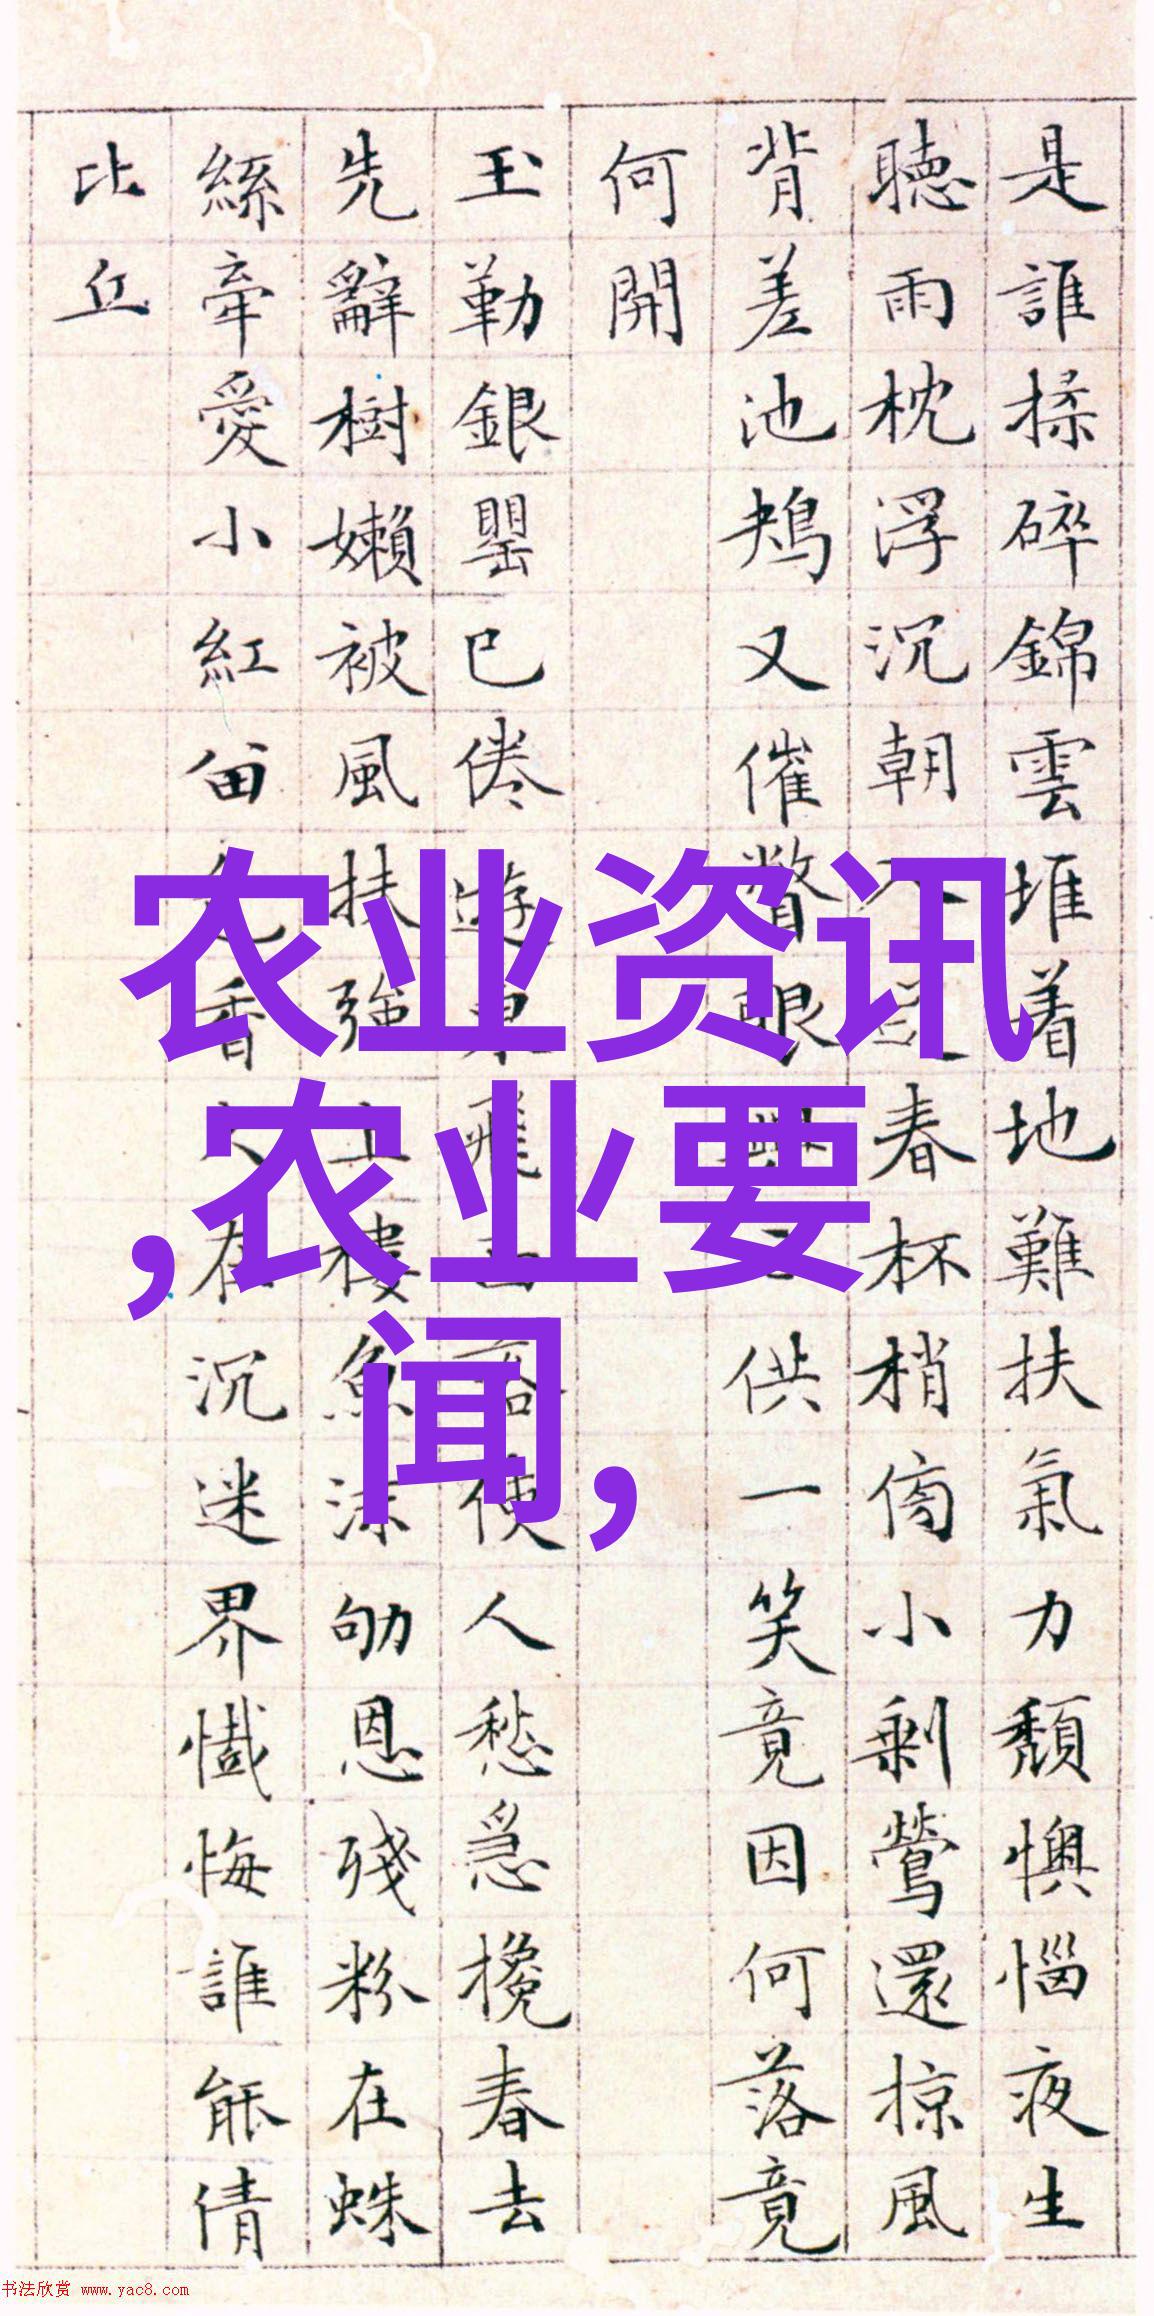 是誰揉碎錦雲堆着地難扶氣力頹懊惱夜生
聴雨枕浮沉朝春杯梢傍小剩鶯還掠風
背差池鳺又催瞥眼供一笑竟因何落竟
何開
玉勒銀罌已倦遊東飛西落使人愁急攙春去
先辭樹嬾被風扶強上樓魚沫劬恩殘粉在蛛
絲牽愛小紅留色香久在沉迷界懺悔誰能倩
比丘
农业资讯
,农业要
闻,
书法欣赏 www.yac8.com